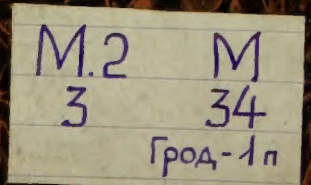 М.2 М
3 34
Грод-1п